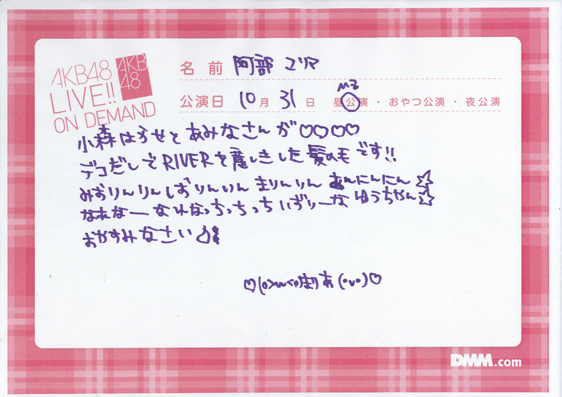 AKB48
LIVE!!
ON DEMAND
AKB
48
名前 阿部 マリア
公演日 10月 31日 昼公演・おやつ公演・夜公演
小森はるせとあみなさんが♡♡♡♡
デコだしでRIVERを した髪の毛です!!
みずりんりんしずりんりん まりんりん あんにんにん☆
なあなーなれなっちっちっち いずりーな ゆうちゃん☆
おやすみなさい
まりあ
DMM.com